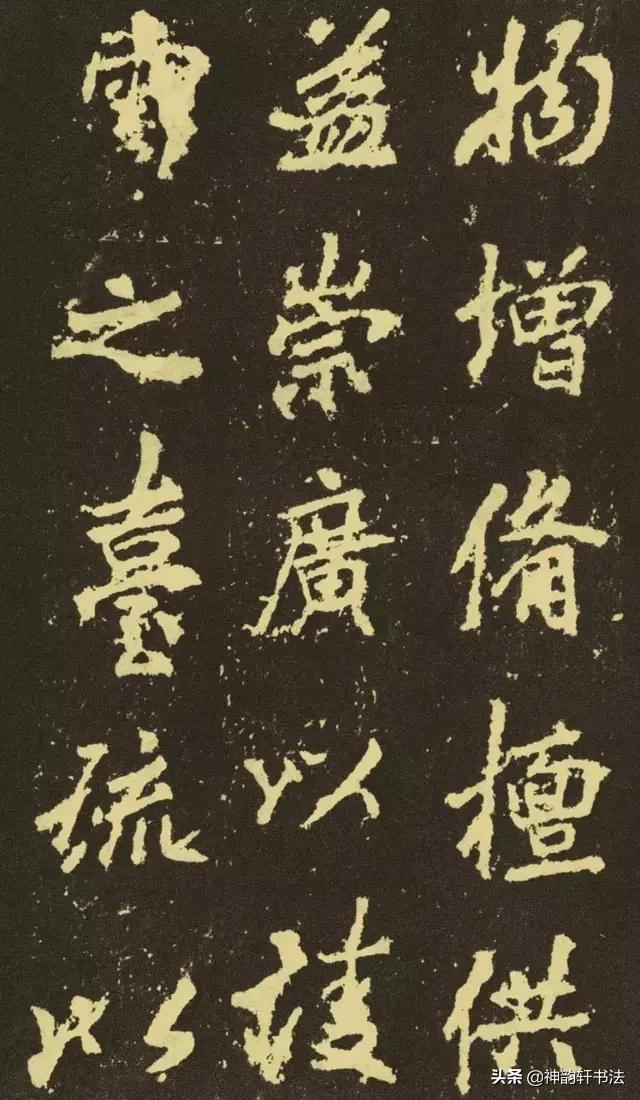 物增備檀供
益崇廣以陵
雲之臺疏以
頭条 @神韵轩书法